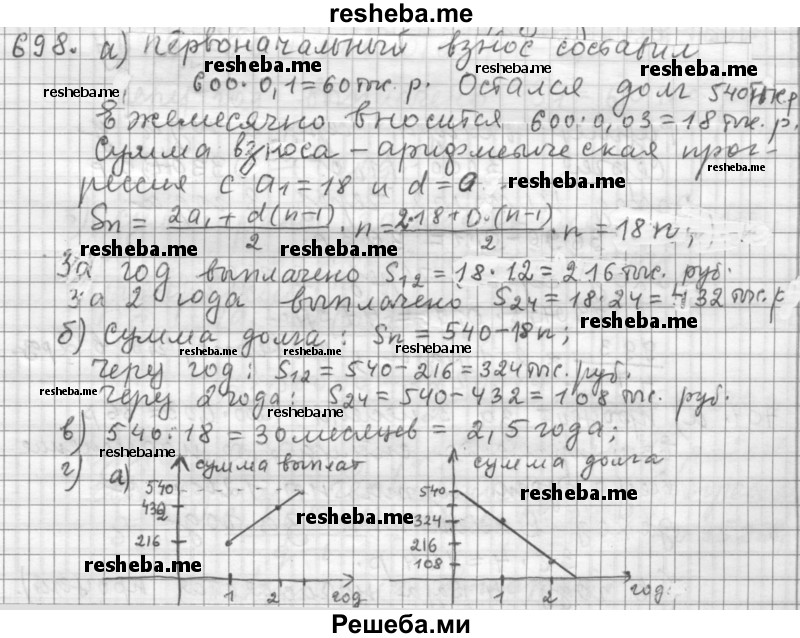 resheba.me
698. а) Первоначальный взнос составил
resheba.me resheba.me resheba.me
600·0,1=60 тыс. р. Остался долг 540 тыс.р
resheba.me resheba.me
Ежемесячно вносится 600·0,03=18 тыс. р.
Сумма взноса – арифметическая прог-
resheba.me
рессия с a₁=18 и d=0
resheba.me
Sn = (2a₁+d(n-1))/2 · n = (2·18+0·(n-1))/2 · n = 18n;
resheba.me resheba.me
За год выплачено S₁₂=18·12=216 тыс. руб.
за 2 года выплачено S₂₄=18·24=432 тыс.р
resheba.me
б) Сумма долга: Sn=540-18n;
resheba.me resheba.me resheba.me
Через год: S₁₂=540-216=324 тыс. руб.
resheba.me
Через 2 года: S₂₄=540-432=108 тыс. руб.
resheba.me
в) 540:18=30 месяцев=2,5 года;
resheba.me
г) а) сумма выплат
540
432
216
1 2 год
resheba.me
resheba.me
сумма долга
540
324
216
108
1 2 год
resheba.me
resheba.me
Решеба.ми